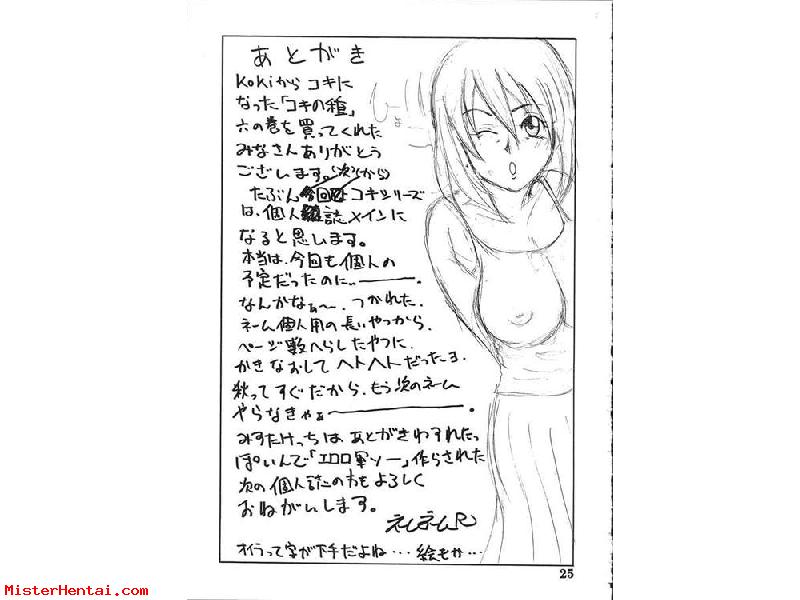 あとがき
Kokiからコキに
なった「コキの種」
六の巻を買ってくれた
みなさんありがとう
ございます。(次から)
たぶん コキシリーズ
は、個人誌メインに
なると思います。
本当は、今回も個人の
予定だったのに、、―――。
なんかなぁ～、つかれた、
ネーム個人用の長いやつから、
ページ数へらしたやつに、
かきなおしてヘトヘトだったよ。
秋ってすぐだから、もう次のネーム
やらなきゃぁ―――――。
みすたけっちは、あとがきわすれたっ
ぽいんで「エロロ軍ソー」作らされた
次の個人誌の方もよろしく
おねがいします。
オイラって字が下手だよね・・・絵もか・・・
25
MisterHentai.com